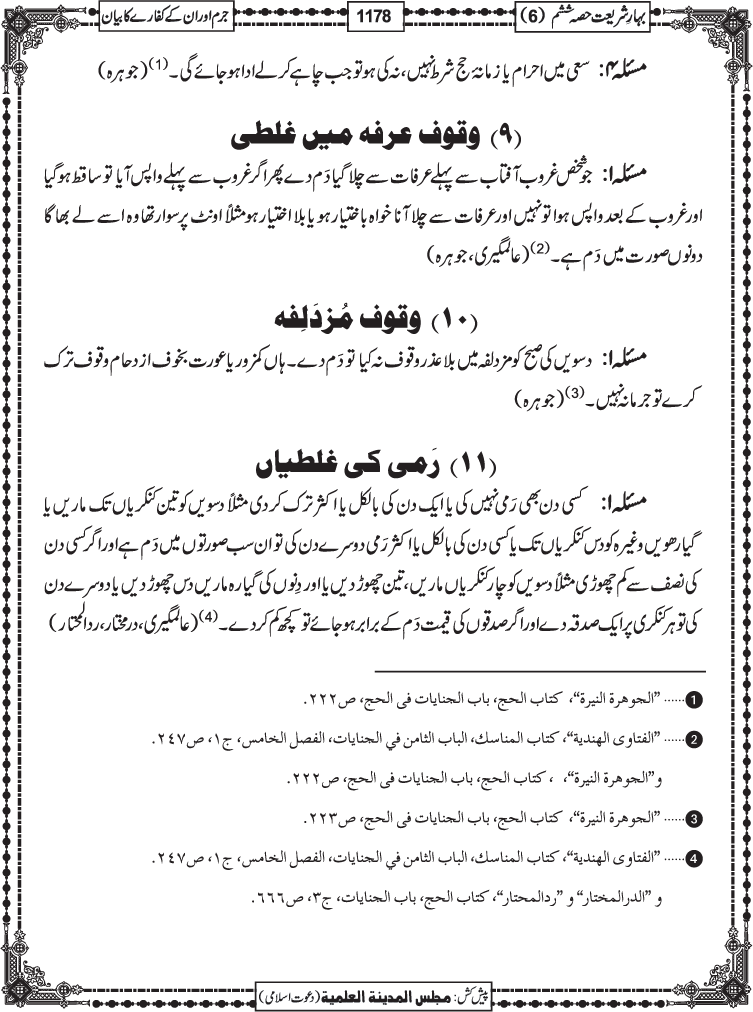 بہارِ شریعت حصہ ششم (6)
1178
جرم اور ان کے کفارے کا بیان
مسئلہ ۴: سعی میں احرام یا زمانۂ حج شرط نہیں، نہ کی ہو تو جب چاہے کرلے ادا ہو جائے گی۔ (1) (جوہرہ)
(۹) وقوف عرفہ میں غلطی
مسئلہ ۱: جو شخص غروب آفتاب سے پہلے عرفات سے چلا گیا دَم دے پھر اگر غروب سے پہلے واپس آیا تو ساقط ہوگیا
اور غروب کے بعد واپس ہوا تو نہیں اور عرفات سے چلا آنا خواہ باختیار ہو یا بلا اختیار ہو مثلاً اونٹ پر سوار تھا وہ اسے لے بھاگا
دونوں صورت میں دَم ہے۔ (2) (عالمگیری، جوہرہ)
(۱۰) وقوف مُزدَلِفه
مسئلہ ۱: دسویں کی صبح کو مزدلفہ میں بلا عذر وقوف نہ کیا تو دَم دے۔ ہاں کمزور یا عورت بخوف ازدحام وقوف ترک
کرے تو جرمانہ نہیں۔ (3) (جوہرہ)
(۱۱) رَمی کی غلطیاں
مسئلہ ۱: کسی دن بھی رَمی نہیں کی یا ایک دن کی بالکل یا اکثر ترک کر دی مثلاً دسویں کو تین کنکریاں تک ماریں یا
گیارھویں وغیرہ کو دس کنکریاں تک یا کسی دن کی بالکل یا اکثر رَمی دوسرے دن کی تو ان سب صورتوں میں دَم ہے اور اگر کسی دن
کی نصف سے کم چھوڑی مثلاً دسویں کو چار کنکریاں ماریں، تین چھوڑ دیں یا اور دِنوں کی گیارہ ماریں دس چھوڑ دیں یا دوسرے دن
کی تو ہر کنکری پر ایک صدقہ دے اور اگر صدقوں کی قیمت دَم کے برابر ہو جائے تو کچھ کم کردے۔ (4) (عالمگیری، درمختار، ردالمحتار)
1 ...... "الجوهرة النيرة"، كتاب الحج، باب الجنايات فى الحج، ص۲۲۲.
2 ...... "الفتاوى الهندية"، كتاب المناسك، الباب الثامن في الجنايات، الفصل الخامس، ج۱، ص۲٤۷.
و"الجوهرة النيرة"، ، كتاب الحج، باب الجنايات فى الحج، ص۲۲۲.
3 ...... "الجوهرة النيرة"، كتاب الحج، باب الجنايات فى الحج، ص۲۲۳.
4 ...... "الفتاوى الهندية"، كتاب المناسك، الباب الثامن في الجنايات، الفصل الخامس، ج۱، ص۲٤۷.
و "الدرالمختار" و "ردالمحتار"، كتاب الحج، باب الجنايات، ج۳، ص٦٦٦.
پیش کش: مجلس المدینة العلمیة (دعوت اسلامی)